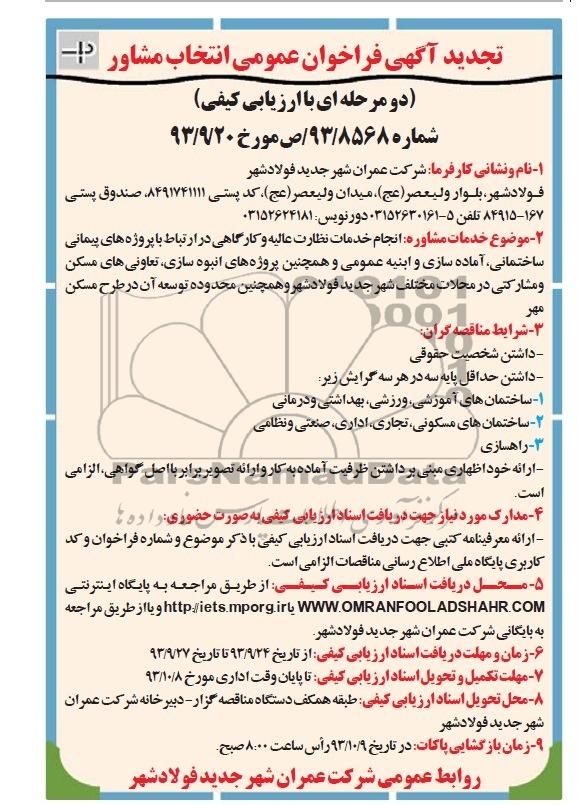 تجدید آگهی فراخوان عمومی انتخاب مشاور
(دو مرحله ای با ارزیابی کیفی)
شماره ۹۳/۸۵۶۸/ص مورخ ۹۳/۹/۲۰
۱-نام و نشانی کارفرما: شرکت عمران شهر جدید فولادشهر
فولادشهر، بلوار ولیعصر(عج)، میدان ولیعصر(عج)، کد پستی ۸۴۹۱۷۴۱۱۱۱، صندوق پستی
۸۴۹۱۵-۱۶۷ تلفن ۵-۰۳۱۵۲۶۳۰۱۶۱ دورنویس: ۰۳۱۵۲۶۲۴۱۸۱
۲-موضوع خدمات مشاوره: انجام خدمات نظارت عالیه و کارگاهی در ارتباط با پروژه های پیمانی
ساختمانی، آماده سازی و ابنیه عمومی و همچنین پروژه های انبوه سازی، تعاونی های مسکن
و مشارکتی در محلات مختلف شهر جدید فولادشهر و همچنین محدوده توسعه آن در طرح مسکن
مهر
۳-شرایط مناقصه گران:
-داشتن شخصیت حقوقی
-داشتن حداقل پایه سه در هر سه گرایش زیر:
۱-ساختمان های آموزشی، ورزشی، بهداشتی و درمانی
۲-ساختمان های مسکونی، تجاری، اداری، صنعتی و نظامی
۳-راهسازی
-ارائه خود اظهاری مبنی بر داشتن ظرفیت آماده به کار و ارائه تصویر برابر با اصل گواهی، الزامی
است.
۴-مدارک مورد نیاز جهت دریافت اسناد ارزیابی کیفی به صورت حضوری:
-ارائه معرفینامه کتبی جهت دریافت اسناد ارزیابی کیفی با ذکر موضوع و شماره فراخوان و کد
کاربری پایگاه ملی اطلاع رسانی مناقصات الزامی است.
۵-محل دریافت اسناد ارزیابی کیفی: از طریق مراجعه به پایگاه اینترنتی
WWW.OMRANFOOLADSHAHR.COM یا http://iets.mporg.ir و یا از طریق مراجعه
به بایگانی شرکت عمران شهر جدید فولادشهر.
۶-زمان و مهلت دریافت اسناد ارزیابی کیفی: از تاریخ ۹۳/۹/۲۴ تا تاریخ ۹۳/۹/۲۷
۷-مهلت تکمیل و تحویل اسناد ارزیابی کیفی: تا پایان وقت اداری مورخ ۹۳/۱۰/۸
۸-محل تحویل اسناد ارزیابی کیفی: طبقه همکف دستگاه مناقصه گزار- دبیرخانه شرکت عمران
شهر جدید فولادشهر
۹-زمان بازگشایی پاکات: در تاریخ ۹۳/۱۰/۹ رأس ساعت ۸:۰۰ صبح.
روابط عمومی شرکت عمران شهر جدید فولادشهر
ParsNamadData